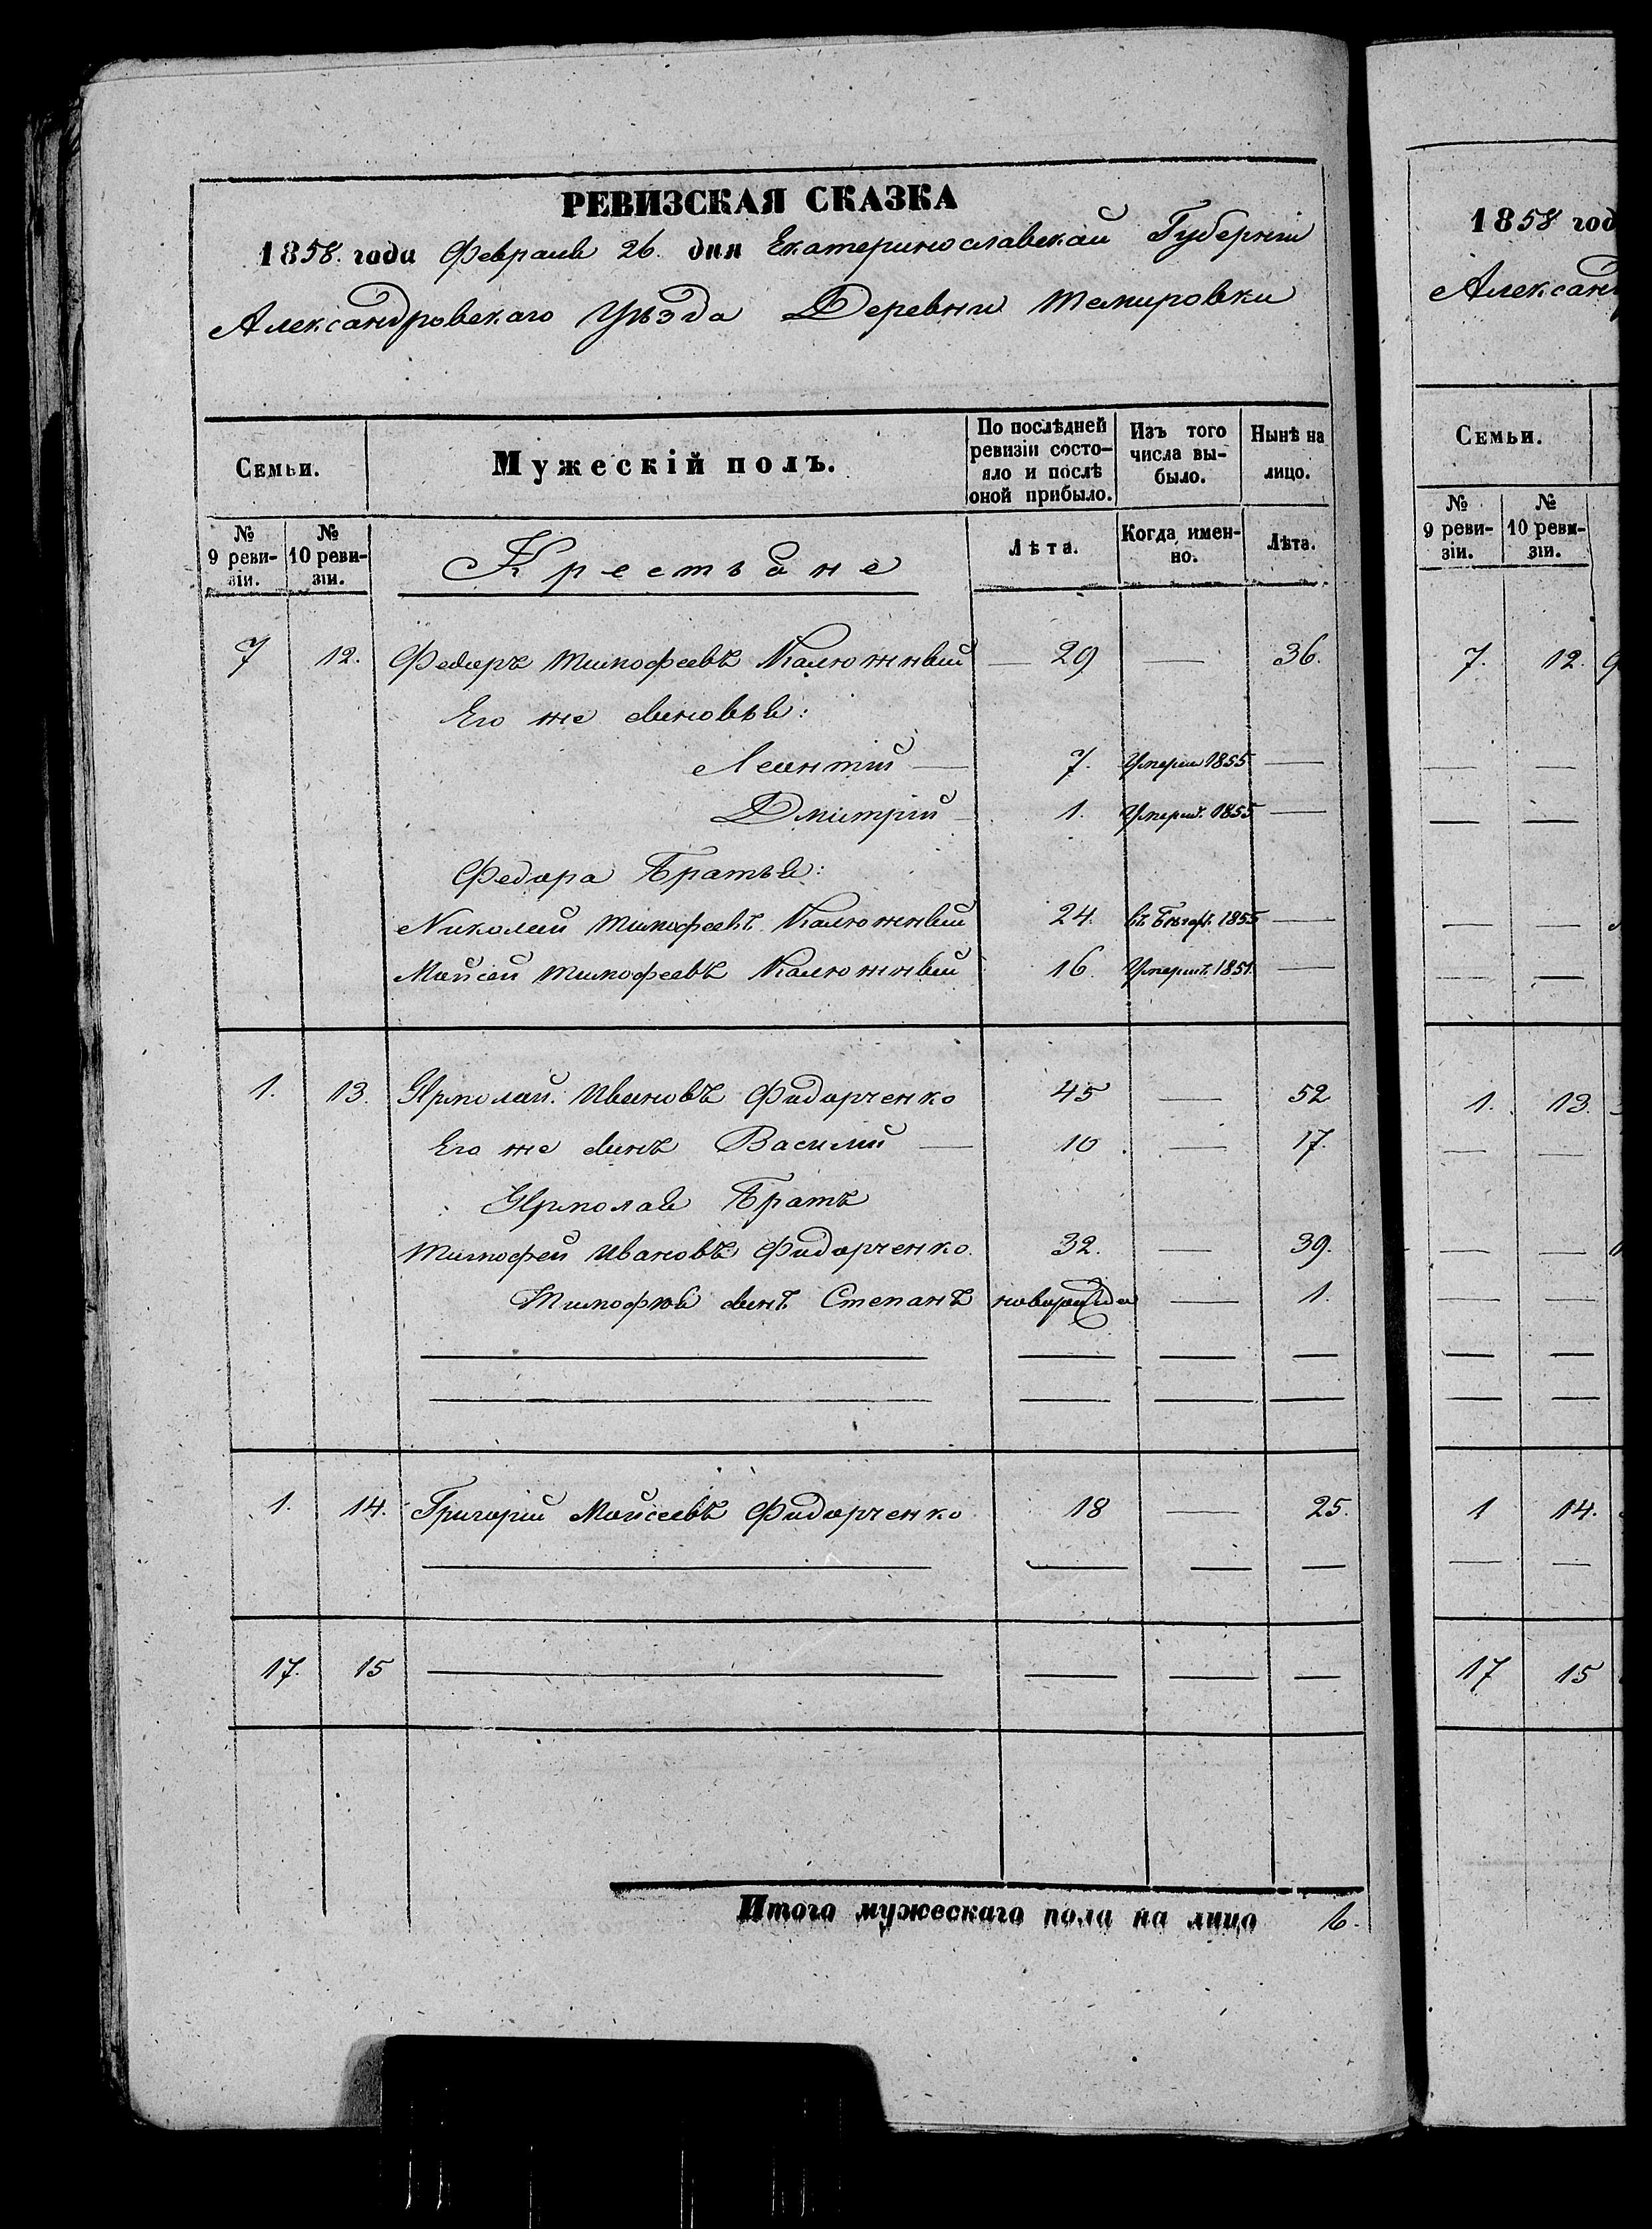 РЕВИЗСКАЯ СКАЗКА
1858. года Февраля 26. дня Екатеринославской Губерніи
Александровскаго Уѣзда Деревни Темировки
Семьи.
Мужескій полъ.
По послѣдней ревизіи состояло и послѣ оной прибыло.
Изъ того числа выбыло.
Нынѣ на лицо.
№ 9 ревизіи.
№ 10 ревизіи.
Крестьяне
Лѣта.
Когда именно.
Лѣта.
7 12. Федоръ Тимофеевъ Калюжный — 29 — 36.
Его же сыновья:
Леонтій — 7. Умерш 1855 —
Дмитрій — 1. Умерш. 1855 —
Федора Братья:
Николай Тимофеевъ Калюжный 24. въ 1855 —
Мойсей Тимофеевъ Калюжный 16. Умерш. 1851. —
1. 13. Ярмолай Ивановъ Фидорченко 45 — 52
Его же сынъ Василій — 10 — 17.
Ярмолая Братъ
Тимофей Ивановъ Фидорченко. 32. — 39.
Тимофѣя сынъ Степанъ — 1.
1. 14. Григорій Мойсеевъ Фидорченко 18 — 25.
17. 15 — — — —
Итого мужескаго пола на лицо 6.
1858 год
Александ
Семьи.
№ 9 ревизіи.
№ 10 ревизіи.
7. 12.
1. 13.
1 14.
17 15